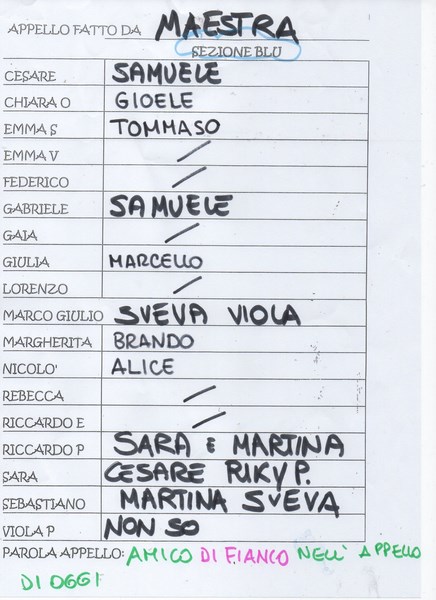 APPELLO FATTO DA MAESTRA
SEZIONE BLU
CESARE SAMUELE
CHIARA O GIOELE
EMMA S TOMMASO
EMMA V /
FEDERICO /
GABRIELE SAMUELE
GAIA /
GIULIA MARCELLO
LORENZO /
MARCO GIULIO SVEVA VIOLA
MARGHERITA BRANDO
NICOLO' ALICE
REBECCA /
RICCARDO E /
RICCARDO P SARA E MARTINA
SARA CESARE RIKY P.
SEBASTIANO MARTINA SVEVA
VIOLA P NON SO
PAROLA APPELLO: AMICO DI FIANCO NELL' APPELLO
DI OGGI